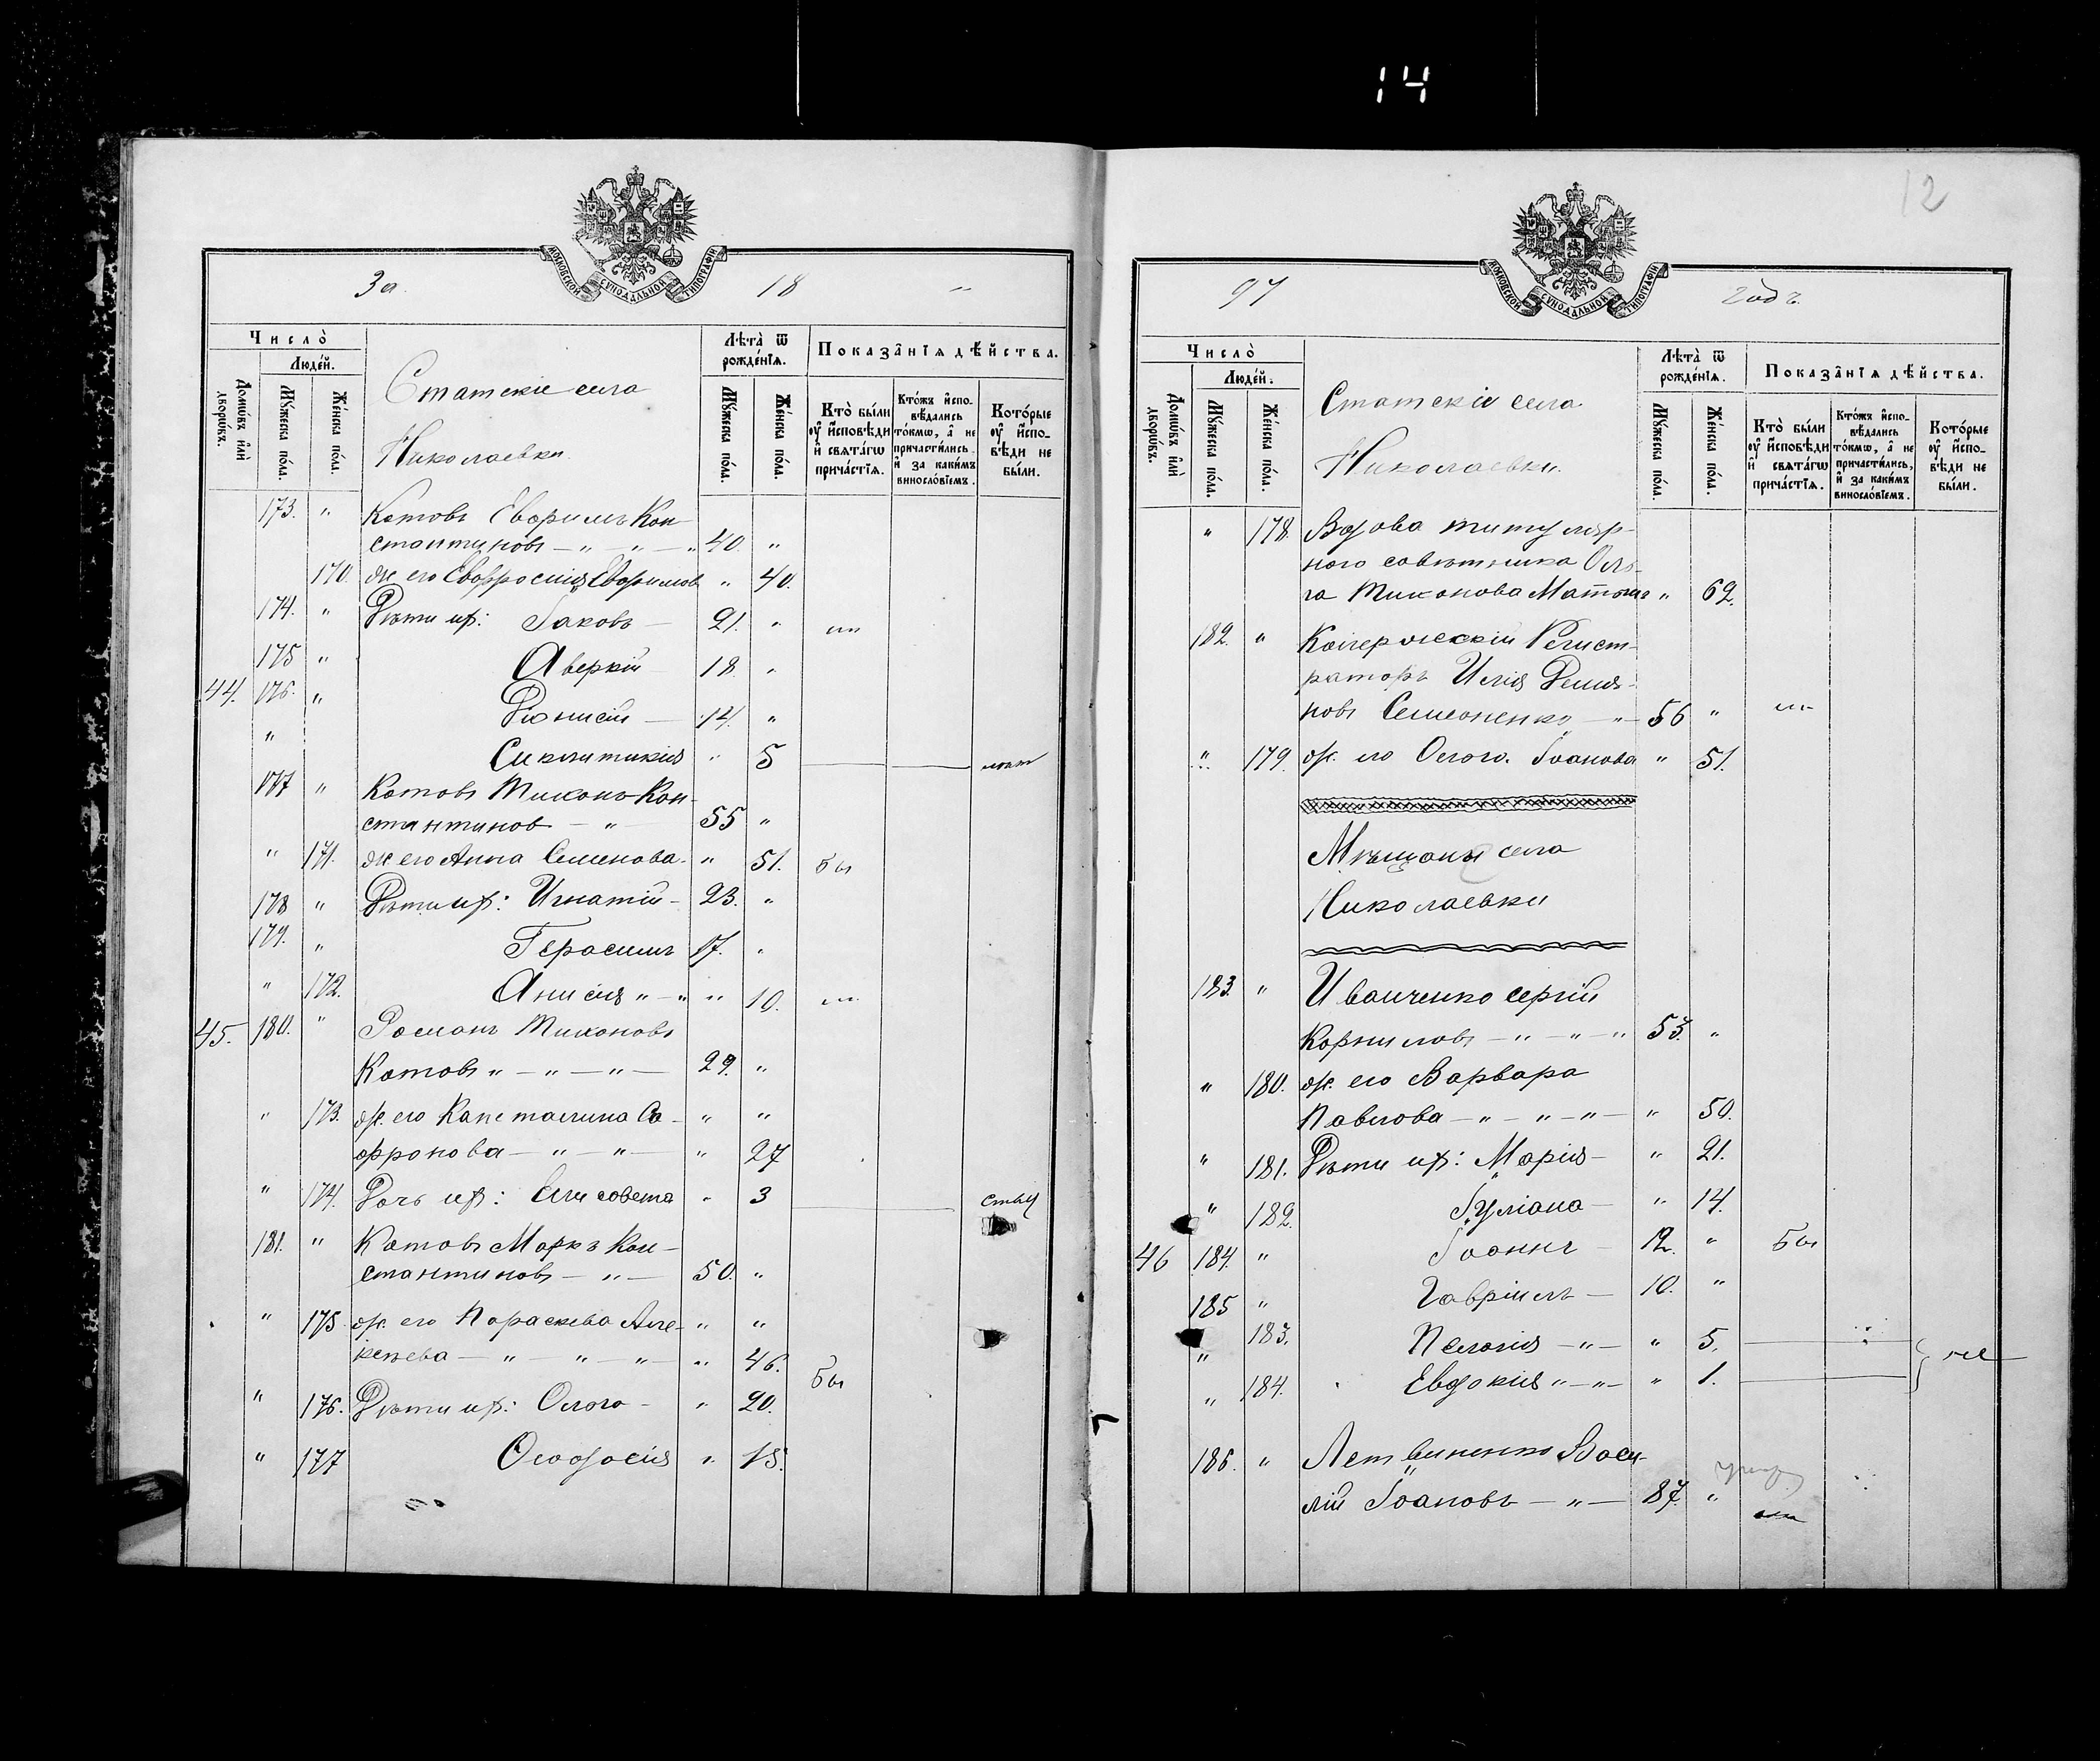 14
12
МОСКОВСКОЙ СѴНОДАЛЬНОЙ ТИПОГРАФІИ
За 18 "
Число̀
Людéй.
Домѡ́въ и҆лѝ дворѡ́въ.
Мꙋ́жеска по́ла.
Же́нска по́ла.
Статскіе села
Николаевки
Лѣ́та ѿ рожде́нїѧ.
Мꙋ́жеска по́ла.
Же́нска по́ла.
Показа̑нїѧ дѣ́йства.
Кто̀ бы́ли ᲂу҆ и҆сповѣ́ди и҆ свѧта́гѡ прича́стїѧ.
Кто́жъ и҆сповѣ́дались то́кмѡ, а҆ не причасти́лись и҆ за каки́мъ виносло́вїемъ.
Кото́рые ᲂу҆ и҆сповѣ́ди не бы́ли.
173. " Котовъ Евфимъ Кон-
стантиновъ — " — " — " 40. "
170. ж. его Евфросинія Евфимов. " 40.
174. " Дѣти их: Іаковъ — 21. "
175 " Аверкій 18. "
44. 176. " Діонисій — 14. "
" Сиклитикія " 5
177 " Котовъ Тихонъ Кон-
стантинов — " 55 "
" 171. ж. его Анна Семенова. " 51. Бы
178 " Дѣти их: Игнатій — 23. "
179. " Герасимъ 17. "
" 172. Анисія " — " " 10.
45. 180. " Романъ Тихоновъ
Котовъ " — " — " — 29. "
" 173. ж. его Капетолина Со- " "
фронова — " — " — " 27
" 174. Дочь их: Елисовета " 3
181. " Котовъ Маркъ Кон-
стантиновъ — " — 50. "
" 175 ж. его Параскева Але- " "
ксѣева — " — " — " — " 46. Бы
" 176. Дѣти их: Олга — " 20.
" 177 Ѳеодосія " 15.
97 годъ
Число̀
Людéй.
Домѡ́въ и҆лѝ дворѡ́въ.
Мꙋ́жеска по́ла.
Же́нска по́ла.
Статскіе села
Николаевки.
Лѣ́та ѿ рожде́нїѧ.
Мꙋ́жеска по́ла.
Же́нска по́ла.
Показа̑нїѧ дѣ́йства.
Кто̀ бы́ли ᲂу҆ и҆сповѣ́ди и҆ свѧта́гѡ прича́стїѧ.
Кто́жъ и҆сповѣ́дались то́кмѡ, а҆ не причасти́лись, и҆ за каки́мъ виносло́вїемъ.
Кото́рые ᲂу҆ и҆сповѣ́ди не бы́ли.
" 178. Вдова титуляр-
ного совѣтника Оль-
га Тихонова " 62.
182. " Колержскій Регист-
раторъ Илія Демья-
новъ Семоненко — " — 56 "
" 179. ж. его Олга. Іоанова " 51.
Мѣщаны села
Николаевки
183. " Иванченко Сергій
Корниловъ — " — " — " 53. "
" 180. ж. его Варвара
Павлова — " — " — " — " 50.
" 181. Дѣти их: Марія — " 21.
" 182. Іуліана — " 14.
46 184. " Іоаннъ — 12. " Бы
185 " Гавріилъ — 10. "
" 183. Пелагія — " — " 5.
" 184. Евдокія " — " — " 1.
186. " Летвиненко Васи-
лій Іоановъ — " — 87. "